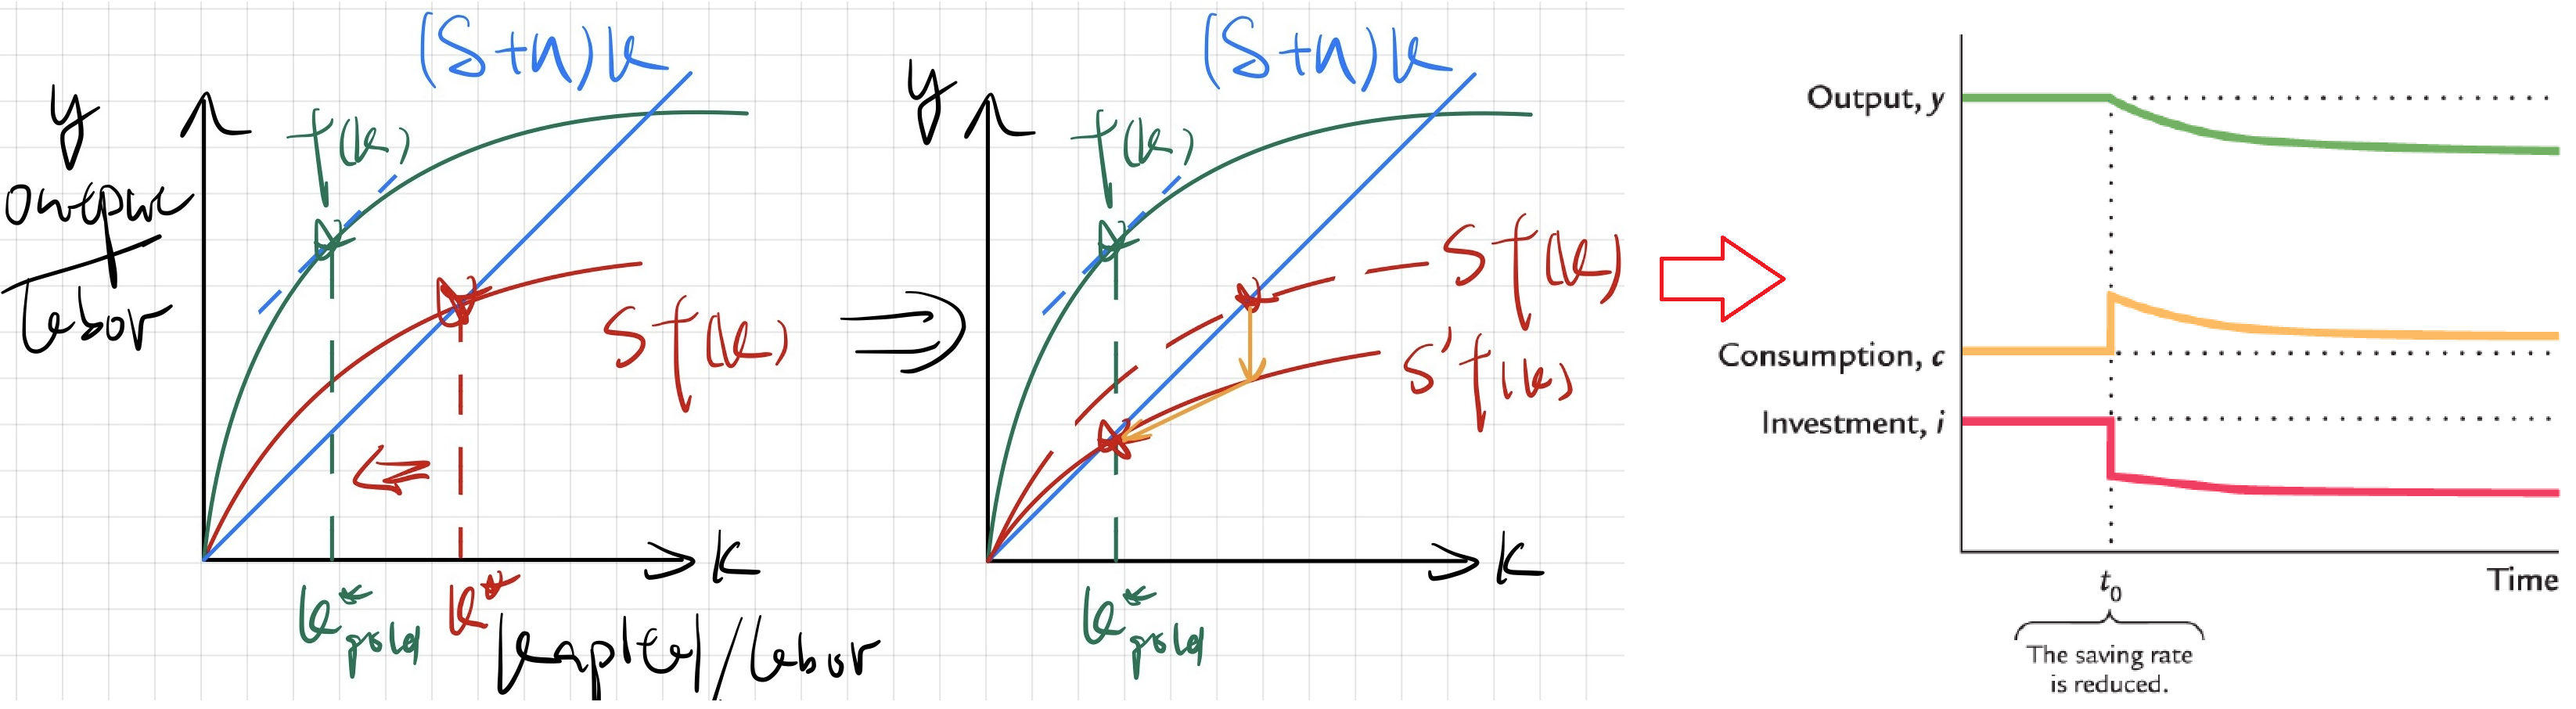 (δ+n)k
y
output
labor
f(k)
sf(k)
k*gold
k*
k
kapital/labor
(δ+n)k
y
f(k)
sf(k)
s'f(k)
k*gold
k
Output, y
Consumption, c
Investment, i
t0
Time
The saving rate
is reduced.